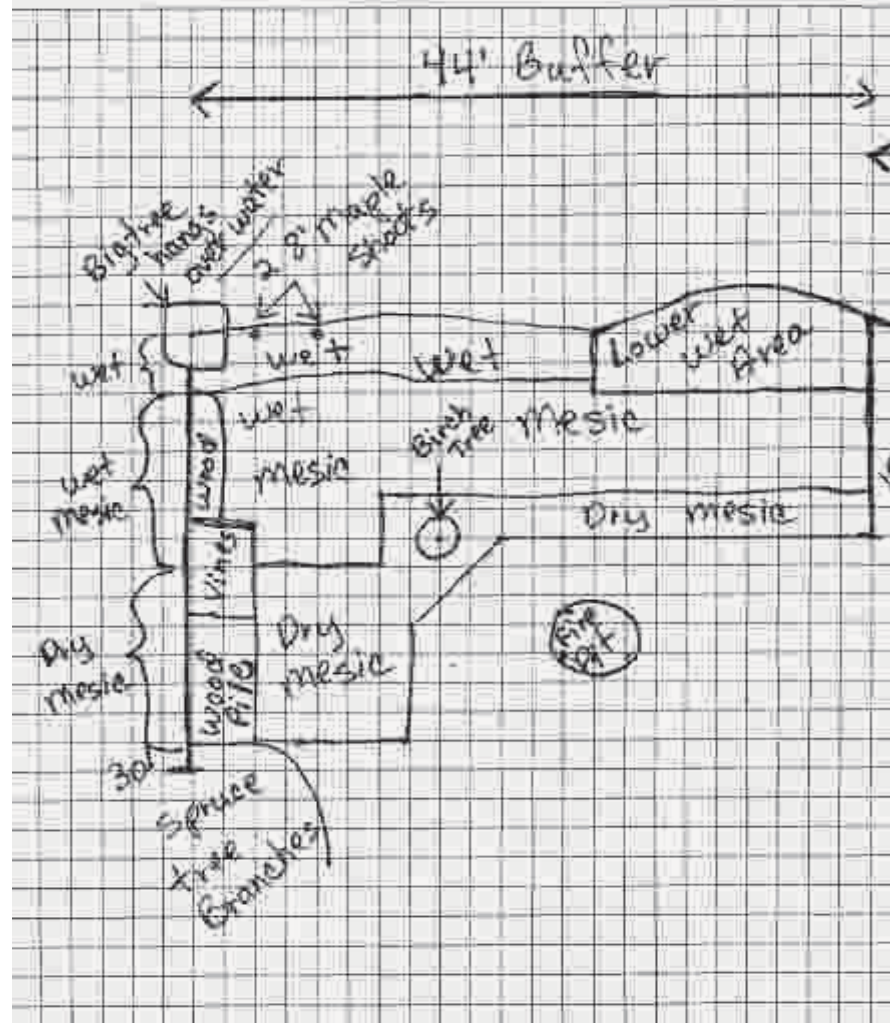 44' Buffer
Big tree
hangs
over water
2 8' Maple
Shoots
wet
wet
wet
Lower
wet
Area
wet
mesic
wood
wet
mesic
Birch
Tree
Mesic
Dry mesic
Vines
Dry
mesic
Wood
Pile
Dry
mesic
Fire
Pit
30'
Spruce
tree
Branches